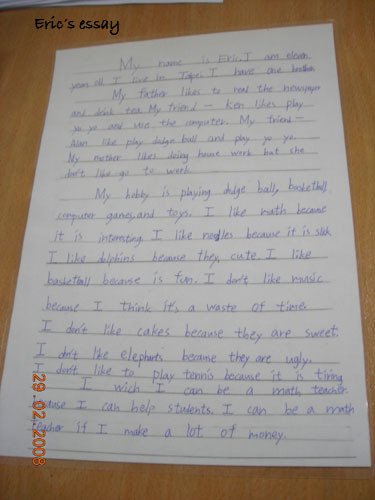 Eric's essay
My name is Eric. I am eleven
years old. I live in Taipei. I have one brother.
My father likes to read the newspaper
and drink tea. My friend - Ken likes play
yo yo and use the computer. My friend -
Alan like play dodge ball and play yo yo.
My mother likes doing house work but she
don't like go to work.
My hobby is playing dodge ball, basketball,
computer games, and toys. I like math because
it is interesting. I like noodles because it is
I like dolphins because they, cute. I like
basketball because is fun. I don't like music
because I think it's a waste of time.
I don't like cakes because they are sweet.
I don't like elephants because they are ugly.
I don't like to play tennis because it is tiring
I wich I can be a math teacher.
because I can help students. I can be a math
teacher if I make a lot of money.
29.02.2008